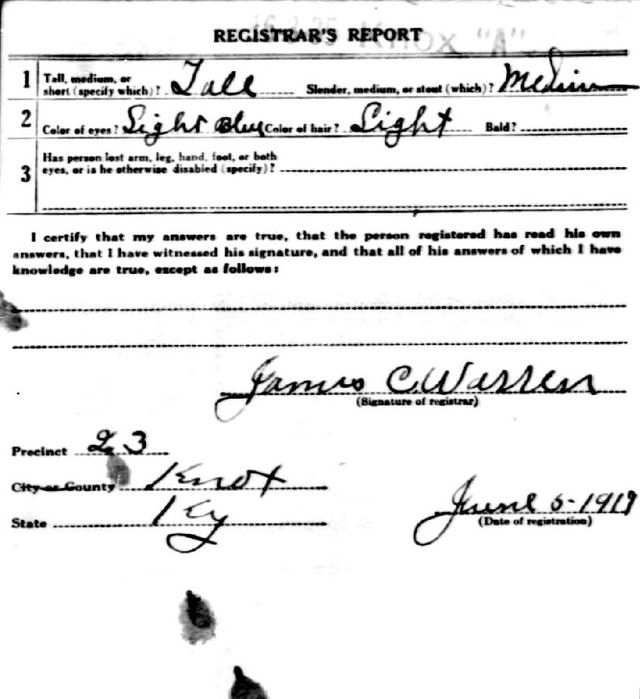 Knox "A"
REGISTRAR'S REPORT
1 Tall, medium, or short (specify which)? Tall Slender, medium, or stout (which)? Medium
2 Color of eyes? Light Blue Color of hair? Light Bald?
3 Has person lost arm, leg, hand, foot, or both
eyes, or is he otherwise disabled (specify)?
I certify that my answers are true, that the person registered has read his own
answers, that I have witnessed his signature, and that all of his answers of which I have
knowledge are true, except as follows:
James C. Warren
(Signature of registrar)
Precinct 23
City or County Knox
State Ky
June 5-1917
(Date of registration)